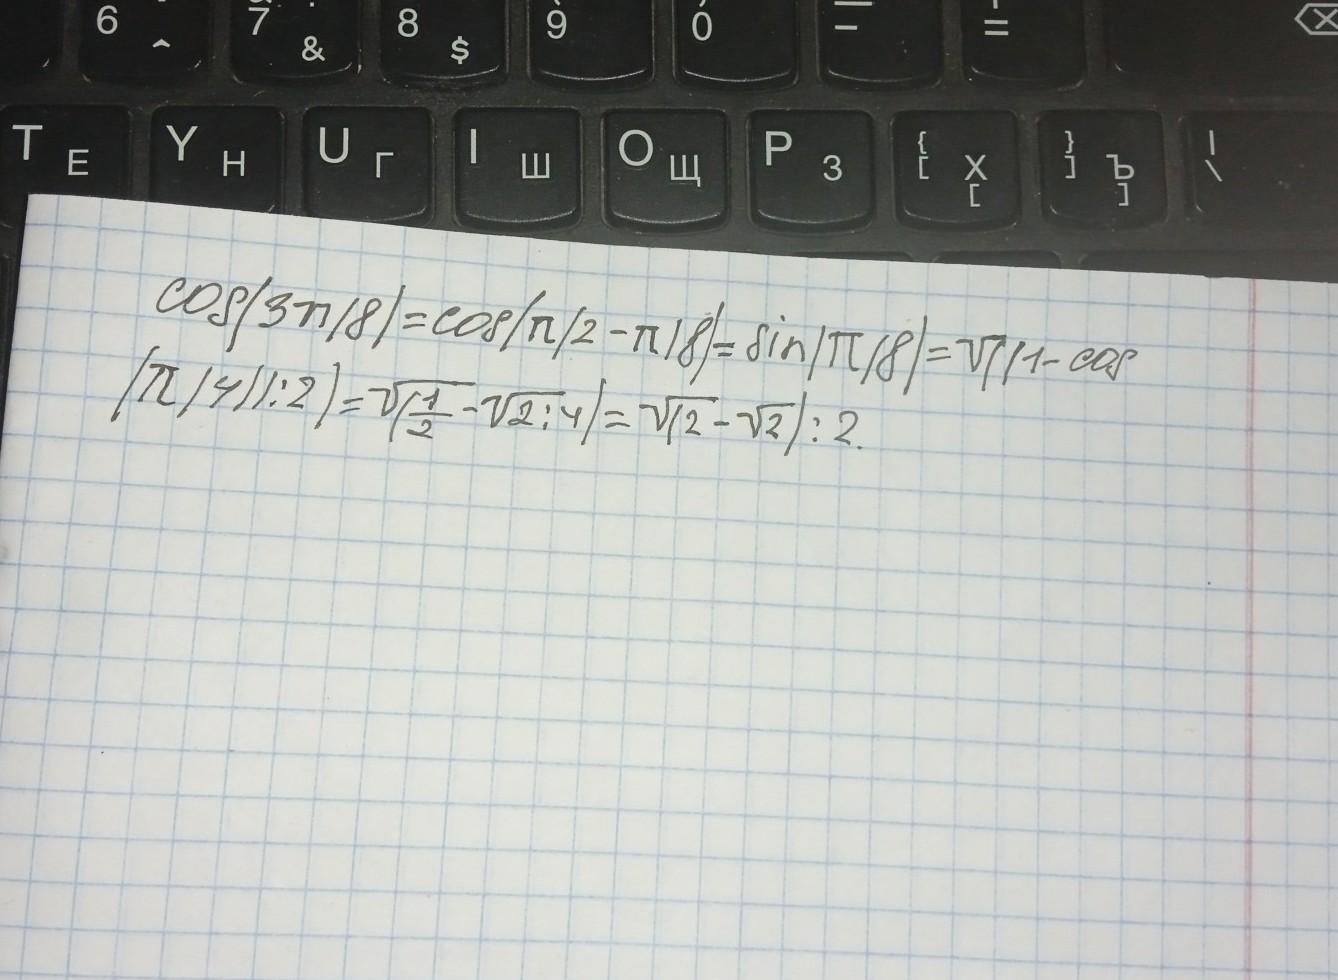 6 ^ 7 & 8 $ 9 0 - =
T Е Y Н U Г I Ш O Щ P З { [ Х [ } ] Ъ ] | \
cos(3π/8)=cos(π/2-π/8)=sin(π/8)=√((1-cos
(π/4)):2)=√(1/2-√2:4)=√(2-√2):2.